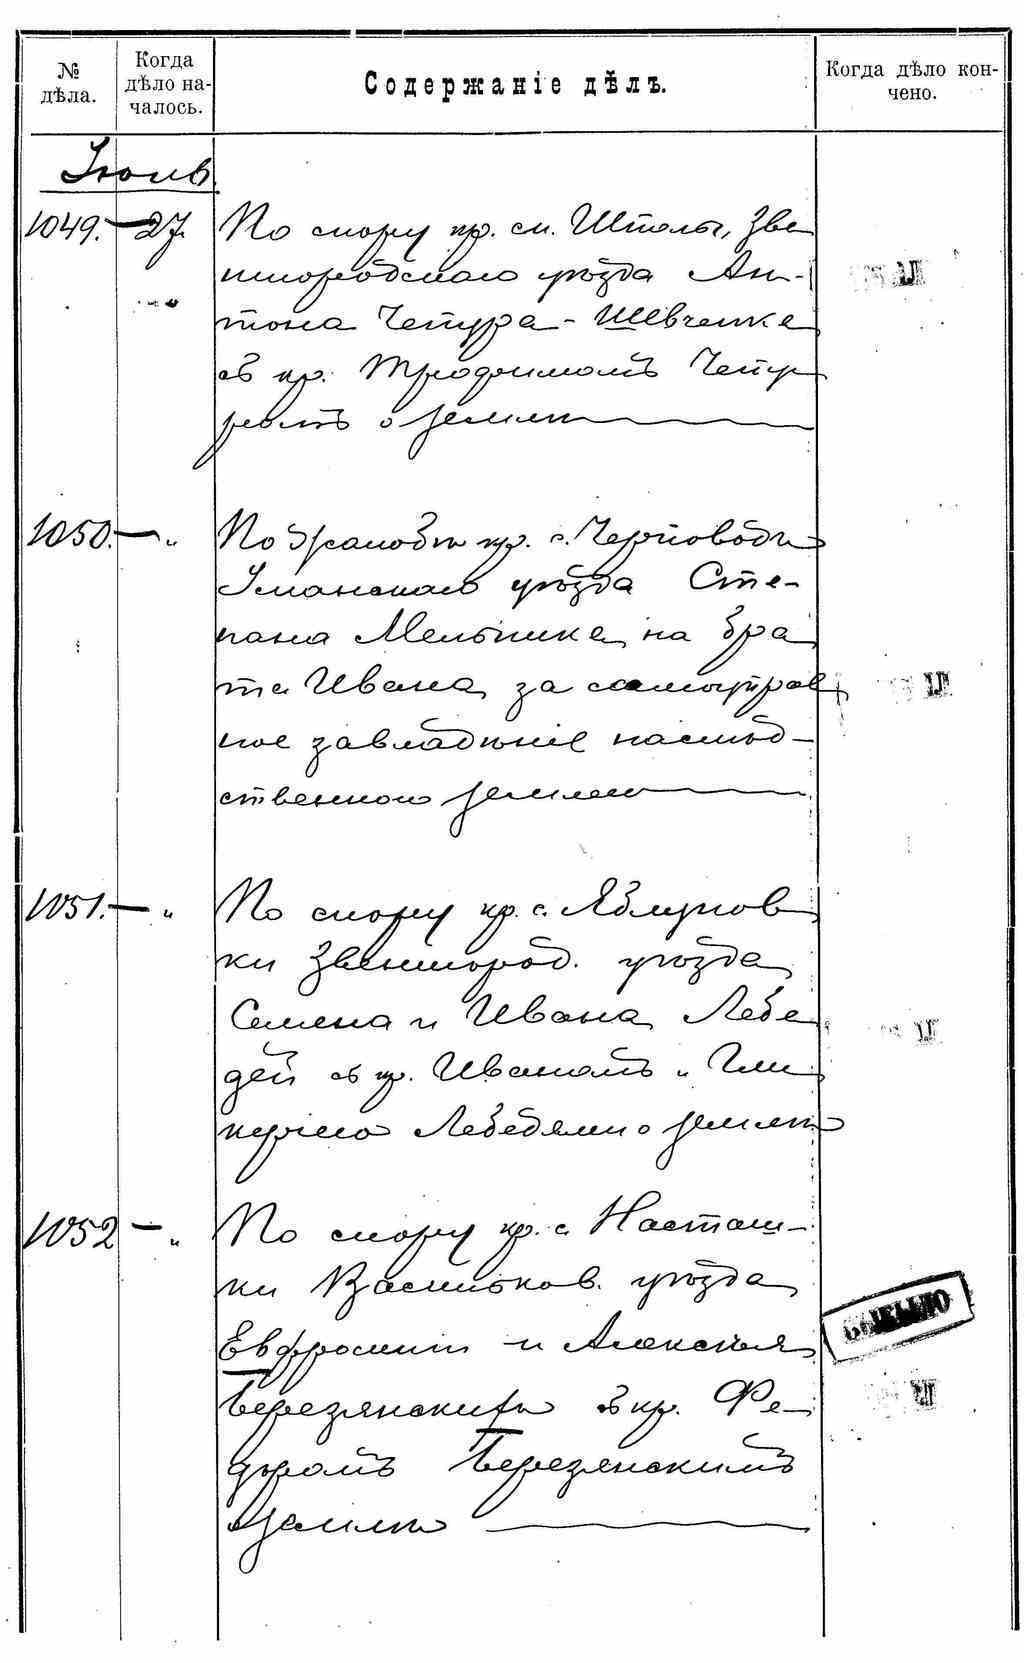 № дѣла.
Когда дѣло на-
чалось.
Содержаніе дѣлъ.
Когда дѣло кон-
чено.
Іюль
1049. — 27. По спору кр. м. Шполы, Зве
нигородскаго уѣзда Ан-
тона Чепура-Шевченка
съ кр. Трофимомъ Чепу
ремъ о землѣ
1050. — " По жалобѣ кр. с. Черповоды
Уманскаго уѣзда Сте-
пана Мельника на бра
та Ивана за самоуправ
ное завладѣніе наслѣд-
ственною землею
1051. — " По спору кр. с. Яблунов
ки Звенигород. уѣзда
Семена и Ивана Лебе
дей съ кр. Иваномъ и Гли
керіею Лебедями о землѣ
1052 — " По спору кр. с. Насташ-
ки Васильков. уѣзда
Евфросиніи и Алексѣя
Березянскихъ съ кр. Фе-
доромъ Березянскимъ
о землѣ